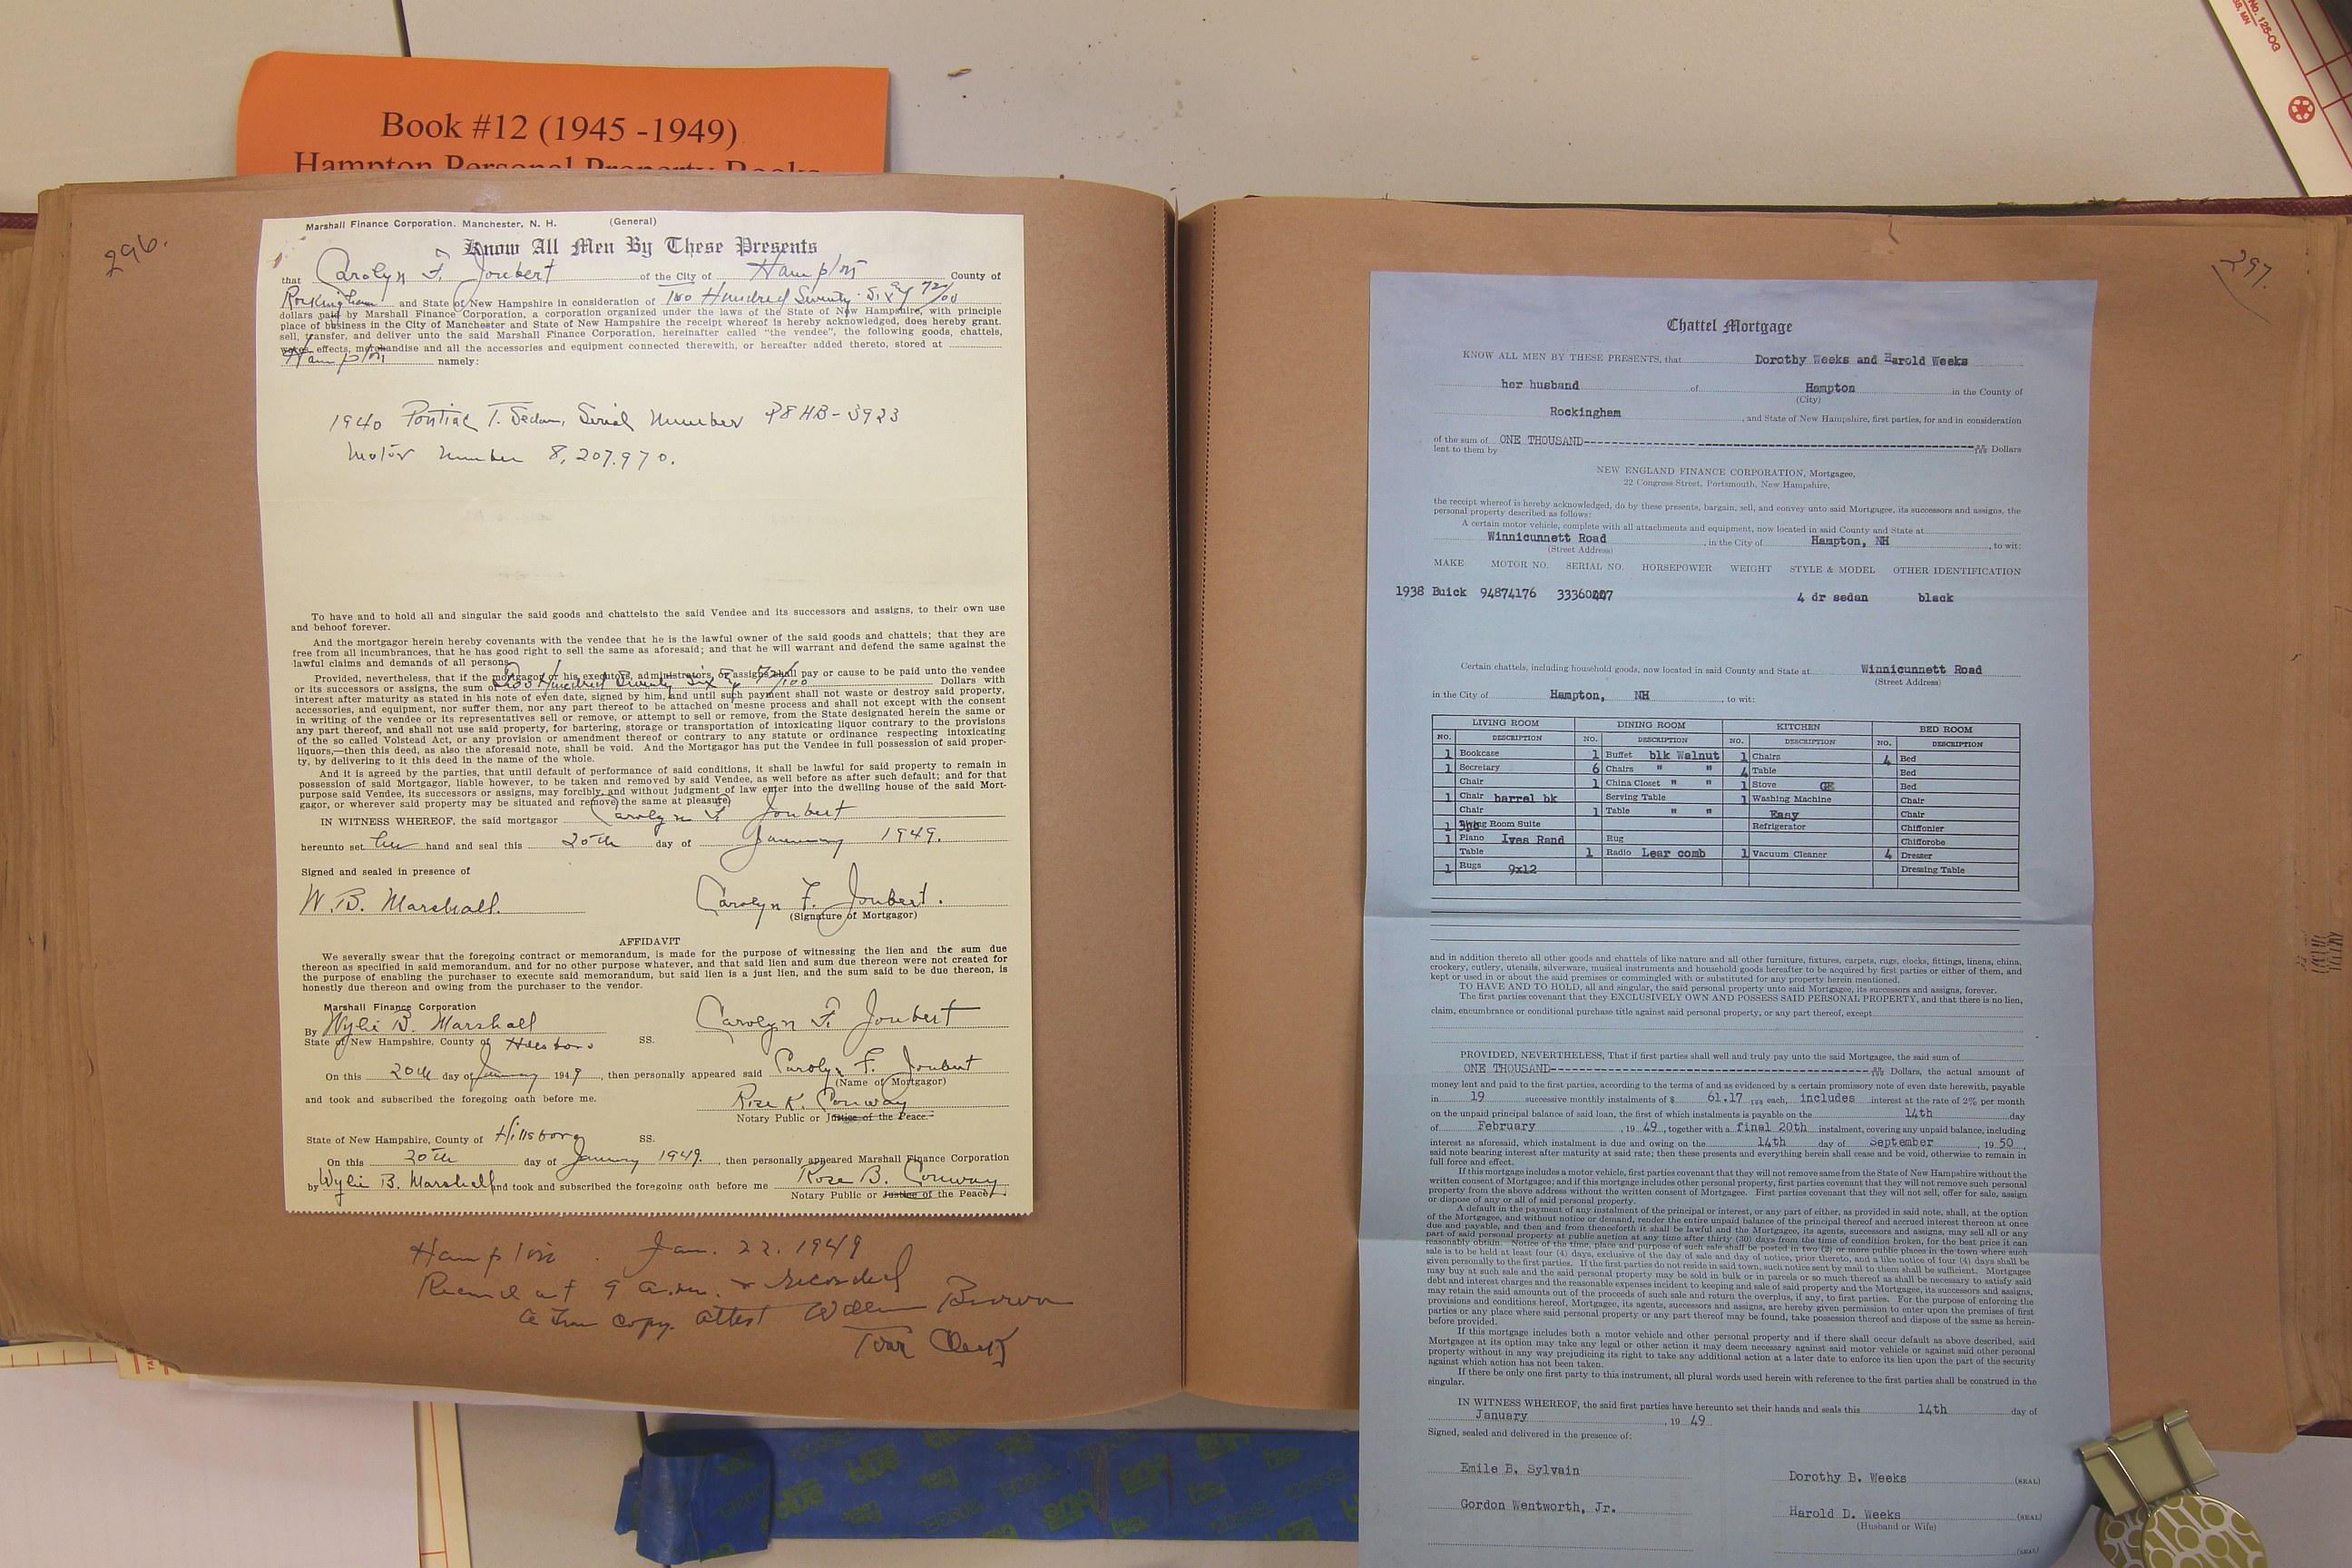 Book #12 (1945 -1949)
Hampton Personal Property Books
No. 125-OG
296.
Marshall Finance Corporation. Manchester, N. H. (General)
Know All Men By These Presents
that Carolyn F. Joubert of the City of Hampton County of
Rockingham and State of New Hampshire in consideration of Two Hundred Seventy-Six & 72/00
dollars paid by Marshall Finance Corporation, a corporation organized under the laws of the State of New Hampshire, with principle
place of business in the City of Manchester and State of New Hampshire the receipt whereof is hereby acknowledged, does hereby grant.
sell, transfer, and deliver unto the said Marshall Finance Corporation, hereinafter called "the vendee", the following goods, chattels,
wares, effects, merchandise and all the accessories and equipment connected therewith, or hereafter added thereto, stored at
Hampton namely:
1940 Pontiac T. Sedan, Serial Number P8HB-3923
Motor Number 8,207.970.
To have and to hold all and singular the said goods and chattelsto the said Vendee and its successors and assigns, to their own use
and behoof forever.
And the mortgagor herein hereby covenants with the vendee that he is the lawful owner of the said goods and chattels; that they are
free from all incumbrances, that he has good right to sell the same as aforesaid; and that he will warrant and defend the same against the
lawful claims and demands of all persons.
Provided, nevertheless, that if the mortgagor or his executors, administrators, or assigns shall pay or cause to be paid unto the vendee
or its successors or assigns, the sum of Two Hundred Seventy Six & 72/100 Dollars with
interest after maturity as stated in his note of even date, signed by him, and until such payment shall not waste or destroy said property,
accessories, and equipment, nor suffer them, nor any part thereof to be attached on mesne process and shall not except with the consent
in writing of the vendee or its representatives sell or remove, or attempt to sell or remove, from the State designated herein the same or
any part thereof, and shall not use said property, for bartering, storage or transportation of intoxicating liquor contrary to the provisions
of the so called Volstead Act, or any provision or amendment thereof or contrary to any statute or ordinance respecting intoxicating
liquors,—then this deed, as also the aforesaid note, shall be void. And the Mortgagor has put the Vendee in full possession of said proper-
ty, by delivering to it this deed in the name of the whole.
And it is agreed by the parties, that until default of performance of said conditions, it shall be lawful for said property to remain in
possession of said Mortgagor, liable however, to be taken and removed by said Vendee, as well before as after such default; and for that
purpose said Vendee, its successors or assigns, may forcibly, and without judgment of law enter into the dwelling house of the said Mort-
gagor, or wherever said property may be situated and remove the same at pleasure)
IN WITNESS WHEREOF, the said mortgagor Carolyn F. Joubert
hereunto set her hand and seal this 20th day of January 1949.
Signed and sealed in presence of
W. B. Marshall. Carolyn F. Joubert.
(Signature of Mortgagor)
AFFIDAVIT
We severally swear that the foregoing contract or memorandum, is made for the purpose of witnessing the lien and the sum due
thereon as specified in said memorandum, and for no other purpose whatever, and that said lien and sum due thereon were not created for
the purpose of enabling the purchaser to execute said memorandum, but said lien is a just lien, and the sum said to be due thereon, is
honestly due thereon and owing from the purchaser to the vendor.
Marshall Finance Corporation
By Wylie B. Marshall Carolyn F. Joubert
State of New Hampshire, County of Hillsboro SS.
On this 20th day of January 1949, then personally appeared said Carolyn F. Joubert
(Name of Mortgagor)
and took and subscribed the foregoing oath before me. Rose K. Conway
Notary Public or Justice of the Peace.
State of New Hampshire, County of Hillsboro SS.
On this 20th day of January 1949., then personally appeared Marshall Finance Corporation
by Wylie B. Marshall and took and subscribed the foregoing oath before me Rose B. Conway
Notary Public or Justice of the Peace.
Hampton. Jan. 22. 1949
Received at 9 a.m. & recorded
a true copy. attest William Brown
Town Clerk
297.
Chattel Mortgage
KNOW ALL MEN BY THESE PRESENTS, that Dorothy Weeks and Harold Weeks
her husband of Hampton in the County of
(City)
Rockingham, and State of New Hampshire, first parties, for and in consideration
of the sum of ONE THOUSAND---------- 00/100 Dollars
lent to them by
NEW ENGLAND FINANCE CORPORATION, Mortgagee,
22 Congress Street, Portsmouth, New Hampshire,
the receipt whereof is hereby acknowledged, do by these presents, bargain, sell, and convey unto said Mortgagee, its successors and assigns, the
personal property described as follows:
A certain motor vehicle, complete with all attachments and equipment, now located in said County and State at
Winnicunnett Road, in the City of Hampton, NH, to wit:
(Street Address)
MAKE MOTOR NO. SERIAL NO. HORSEPOWER WEIGHT STYLE & MODEL OTHER IDENTIFICATION
1938 Buick 94874176 4 dr sedan black
Certain chattels, including household goods, now located in said County and State at Winnicunnett Road
(Street Address)
in the City of Hampton, NH, to wit:
LIVING ROOM DINING ROOM KITCHEN BED ROOM
NO. DESCRIPTION NO. DESCRIPTION NO. DESCRIPTION NO. DESCRIPTION
1 Bookcase 1 Buffet blk Walnut 1 Chairs 4 Bed
1 Secretary 6 Chairs " " 4 Table Bed
Chair 1 China Closet " " 1 Stove GE Bed
1 Chair barrel bk Serving Table 1 Washing Machine Chair
Chair 1 Table " " Easy Chair
1 Living Room Suite Refrigerator Chiffonier
1 Piano Ives Rand Rug Chifforobe
Table 1 Radio Lear comb 1 Vacuum Cleaner 4 Dresser
1 Rugs 9x12 Dressing Table
and in addition thereto all other goods and chattels of like nature and all other furniture, fixtures, carpets, rugs, clocks, fittings, linens, china,
crockery, cutlery, utensils, silverware, musical instruments and household goods hereafter to be acquired by first parties or either of them, and
kept or used in or about the said premises or commingled with or substituted for any property herein mentioned.
TO HAVE AND TO HOLD, all and singular, the said personal property unto said Mortgagee, its successors and assigns, forever.
The first parties covenant that they EXCLUSIVELY OWN AND POSSESS SAID PERSONAL PROPERTY, and that there is no lien,
claim, encumbrance or conditional purchase title against said personal property, or any part thereof, except
PROVIDED, NEVERTHELESS, That if first parties shall well and truly pay unto the said Mortgagee, the said sum of
ONE THOUSAND---------- 00/100 Dollars, the actual amount of
money lent and paid to the first parties, according to the terms of and as evidenced by a certain promissory note of even date herewith, payable
in 19 successive monthly instalments of $ 61.17 each, includes interest at the rate of 2% per month
on the unpaid principal balance of said loan, the first of which instalments is payable on the 14th day
of February, 19 49, together with a final 20th instalment, covering any unpaid balance, including
interest as aforesaid, which instalment is due and owing on the 14th day of September, 19 50
said note bearing interest after maturity at said rate; then these presents and everything herein shall cease and be void, otherwise to remain in
full force and effect.
If this mortgage includes a motor vehicle, first parties covenant that they will not remove same from the State of New Hampshire without the
written consent of Mortgagee; and if this mortgage includes other personal property, first parties covenant that they will not remove such personal
property from the above address without the written consent of Mortgagee. First parties covenant that they will not sell, offer for sale, assign
or dispose of any or all of said personal property.
A default in the payment of any instalment of the principal or interest, or any part of either, as provided in said note, shall, at the option
of the Mortgagee, and without notice or demand, render the entire unpaid balance of the principal thereof and accrued interest thereon at once
due and payable, and then and from thenceforth it shall be lawful and the Mortgagee, its agents, successors and assigns, may sell all or any
part of said personal property at public auction at any time after thirty (30) days from the time of condition broken, for the best price it can
reasonably obtain. Notice of the time, place and purpose of such sale shall be posted in two (2) or more public places in the town where such
sale is to be held at least four (4) days, exclusive of the day of sale and day of notice, prior thereto, and a like notice of four (4) days shall be
given personally to the first parties. If the first parties do not reside in said town, such notice sent by mail to them shall be sufficient. Mortgagee
may buy at such sale and the said personal property may be sold in bulk or in parcels or so much thereof as shall be necessary to satisfy said
debt and interest charges and the reasonable expenses incident to keeping and sale of said property and the Mortgagee, its successors and assigns,
may retain the said amounts out of the proceeds of such sale and return the overplus, if any, to first parties. For the purpose of enforcing the
provisions and conditions hereof, Mortgagee, its agents, successors and assigns, are hereby given permission to enter upon the premises of first
parties or any place where said personal property or any part thereof may be found, take possession thereof and dispose of the same as herein-
before provided.
If this mortgage includes both a motor vehicle and other personal property and if there shall occur default as above described, said
Mortgagee at its option may take any legal or other action it may deem necessary against said motor vehicle or against said other personal
property without in any way prejudicing its right to take any additional action at a later date to enforce its lien upon the part of the security
against which action has not been taken.
If there be only one first party to this instrument, all plural words used herein with reference to the first parties shall be construed in the
singular.
IN WITNESS WHEREOF, the said first parties have hereunto set their hands and seals this 14th day of
January, 19 49
Signed, sealed and delivered in the presence of:
Emile B. Sylvain Dorothy B. Weeks (SEAL)
Gordon Wentworth, Jr. Harold D. Weeks (SEAL)
(Husband or Wife)
(SEAL)